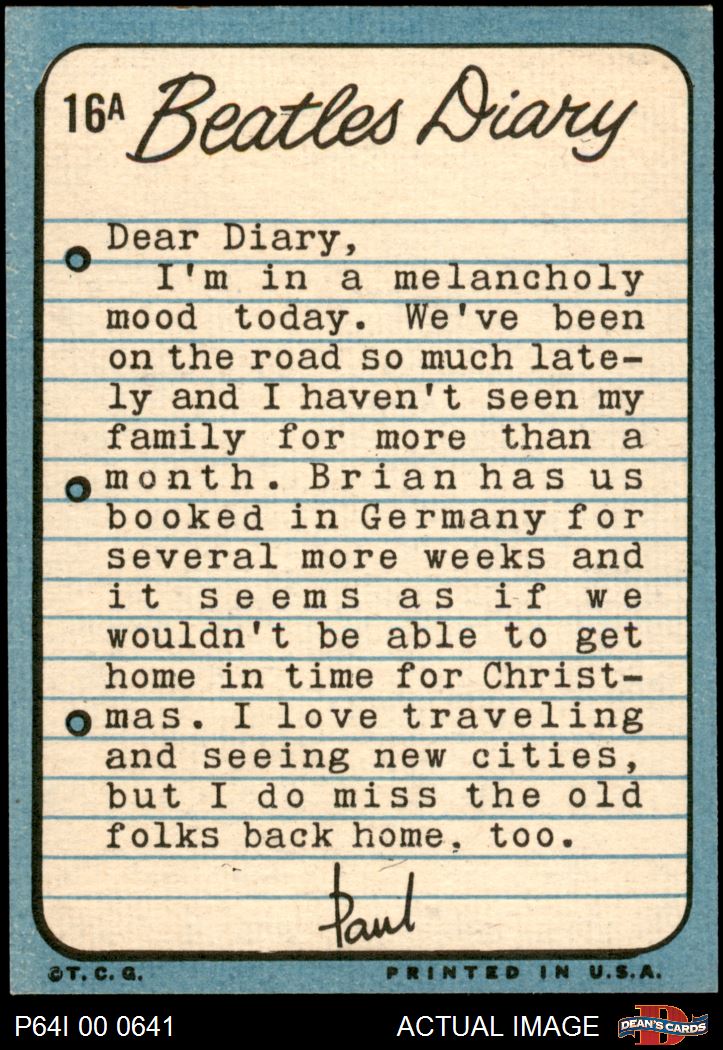 16A Beatles Diary
Dear Diary,
I'm in a melancholy
mood today. We've been
on the road so much late-
ly and I haven't seen my
family for more than a
month. Brian has us
booked in Germany for
several more weeks and
it seems as if we
wouldn't be able to get
home in time for Christ-
mas. I love traveling
and seeing new cities,
but I do miss the old
folks back home, too.
Paul
©T.C.G. PRINTED IN U.S.A.
P64I 00 0641 ACTUAL IMAGE D DEAN'S CARDS